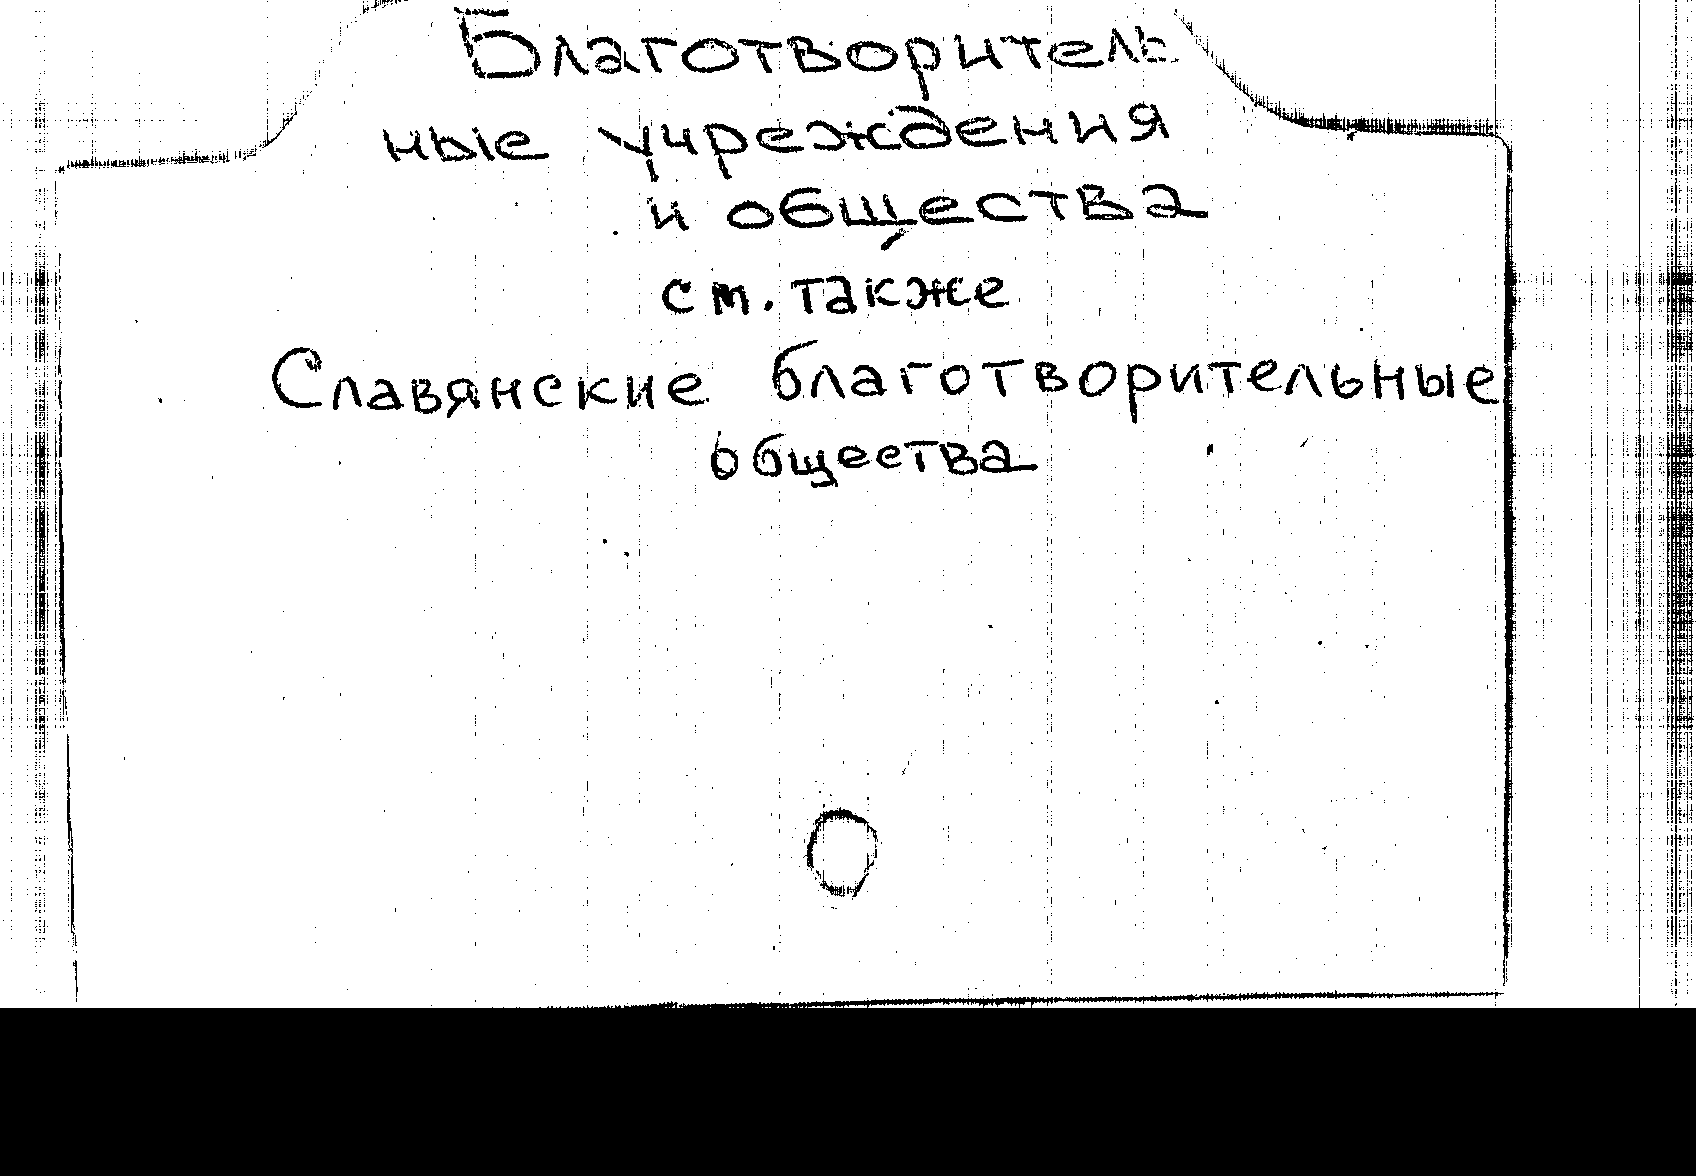 Благотворитель
ные учреждения
и общества
см. также
Славянские благотворительные
общества